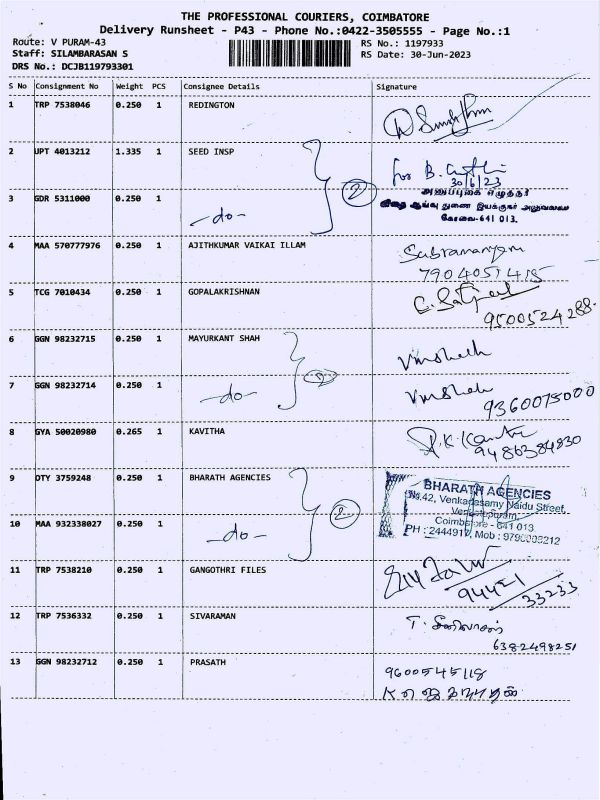 THE PROFESSIONAL COURIERS, COIMBATORE
Delivery Runsheet - P43 - Phone No.:0422-3505555 - Page No.:1
Route: V PURAM-43 RS No.: 1197933
Staff: SILAMBARASAN S RS Date: 30-Jun-2023
DRS No.: DCJB119793301
S No Consignment No Weight PCS Consignee Details Signature
1 TRP 7538046 0.250 1 REDINGTON
2 UPT 4013212 1.335 1 SEED INSP for B.
30/6/23
2
அனுப்புகை எழுத்தர்
3 GDR 5311000 0.250 1 விதை ஆய்வு துணை இயக்குநர் அலுவலகம்
-do- கோவை-641 013.
4 MAA 570777976 0.250 1 AJITHKUMAR VAIKAI ILLAM Subramaniyam
7904051415
5 TCG 7010434 0.250 1 GOPALAKRISHNAN
9500524288
6 GGN 98232715 0.250 1 MAYURKANT SHAH
2
7 GGN 98232714 0.250 1
-do- 9360075000
8 GYA 50020980 0.265 1 KAVITHA
9486384830
9 DTY 3759248 0.250 1 BHARATH AGENCIES BHARATH AGENCIES
No.42, Venkadasamy Naidu Street,
2 Venkitapuram,
10 MAA 932338027 0.250 1 Coimbatore - 641 013
-do- PH : 2444917, Mob :
11 TRP 7538210 0.250 1 GANGOTHRI FILES
94421
33233
12 TRP 7536332 0.250 1 SIVARAMAN T. சீனிவாசன்
6382498251
13 GGN 98232712 0.250 1 PRASATH 9600545118